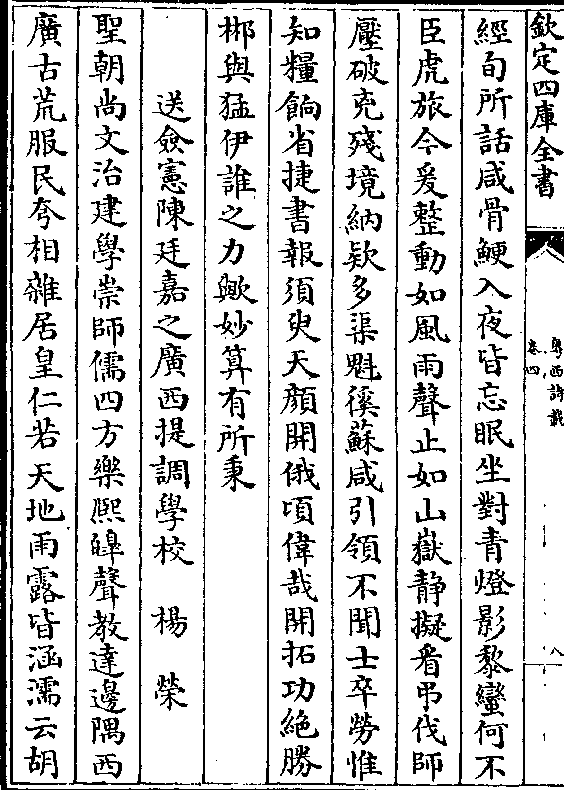 欽定四庫全書
粵西詩載
卷四
八
經旬所話咸骨鯁入夜皆忘眠坐對青燈影黎蠻何不
臣虎旅今爰整動如風雨聲止如山嶽静擬看弔伐師
壓破兇殘境納欵多渠魁徯蘇咸引領不聞士卒勞惟
知糧餉省捷書報須臾天顔開俄頃偉哉開拓功絶勝
郴與猛伊誰之力歟妙算有所秉
送僉憲陳廷嘉之廣西提調學校 楊榮
聖朝尚文治建學崇師儒四方樂熙皥聲教達邊隅西
廣古荒服民夸相雜居皇仁若天地雨露皆涵濡云胡